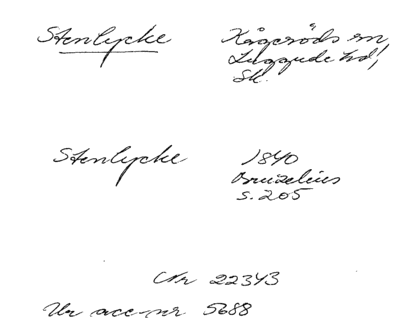 Stenlycke
Kågeröds sn,
Luggude hd,
Sk.
Stenlycke
1840
Bruzelius
s. 205
Nr 22343
Ur acc-nr 5688